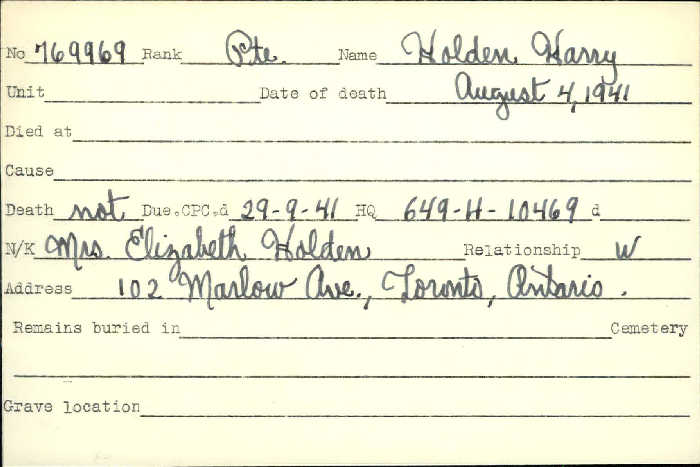 No 769969 Rank Pte. Name Holden Harry
Unit Date of death August 4, 1941
Died at
Cause
Death not Due.CPC.d 29-9-41 HQ 649-H-10469 d
N/K Mrs. Elizabeth Holden Relationship W
Address 102 Marlow Ave., Toronto, Ontario.
Remains buried in Cemetery
Grave location